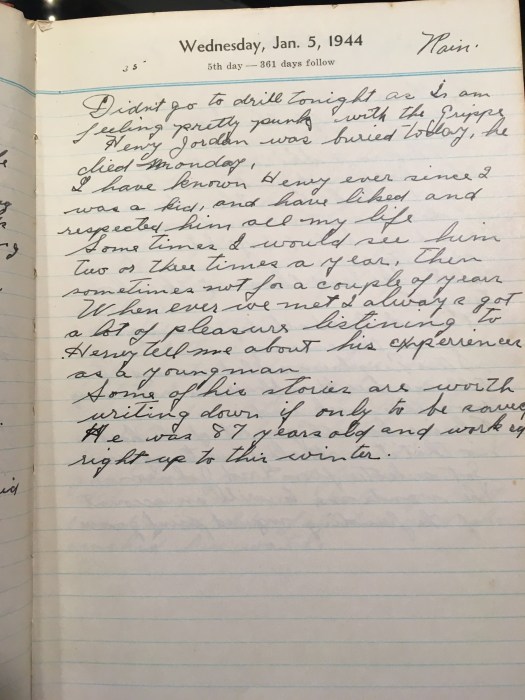 Wednesday, Jan. 5, 1944
Rain.
35
5th day — 361 days follow
Didn't go to drill tonight as Is am
feeling pretty punk with the Grippe
Henry Jordan was buried today, he
died Monday.
I have known Henry ever since I
was a kid, and have liked and
respected him all my life
Some times I would see him
two or three times a year, then
sometimes not for a couple of years
When ever we met I always got
a lot of pleasure listining to
Henry tell me about his experiences
as a youngman
Some of his stories are worth
writing down if only to be save
He was 87 years old and work
right up to this winter.